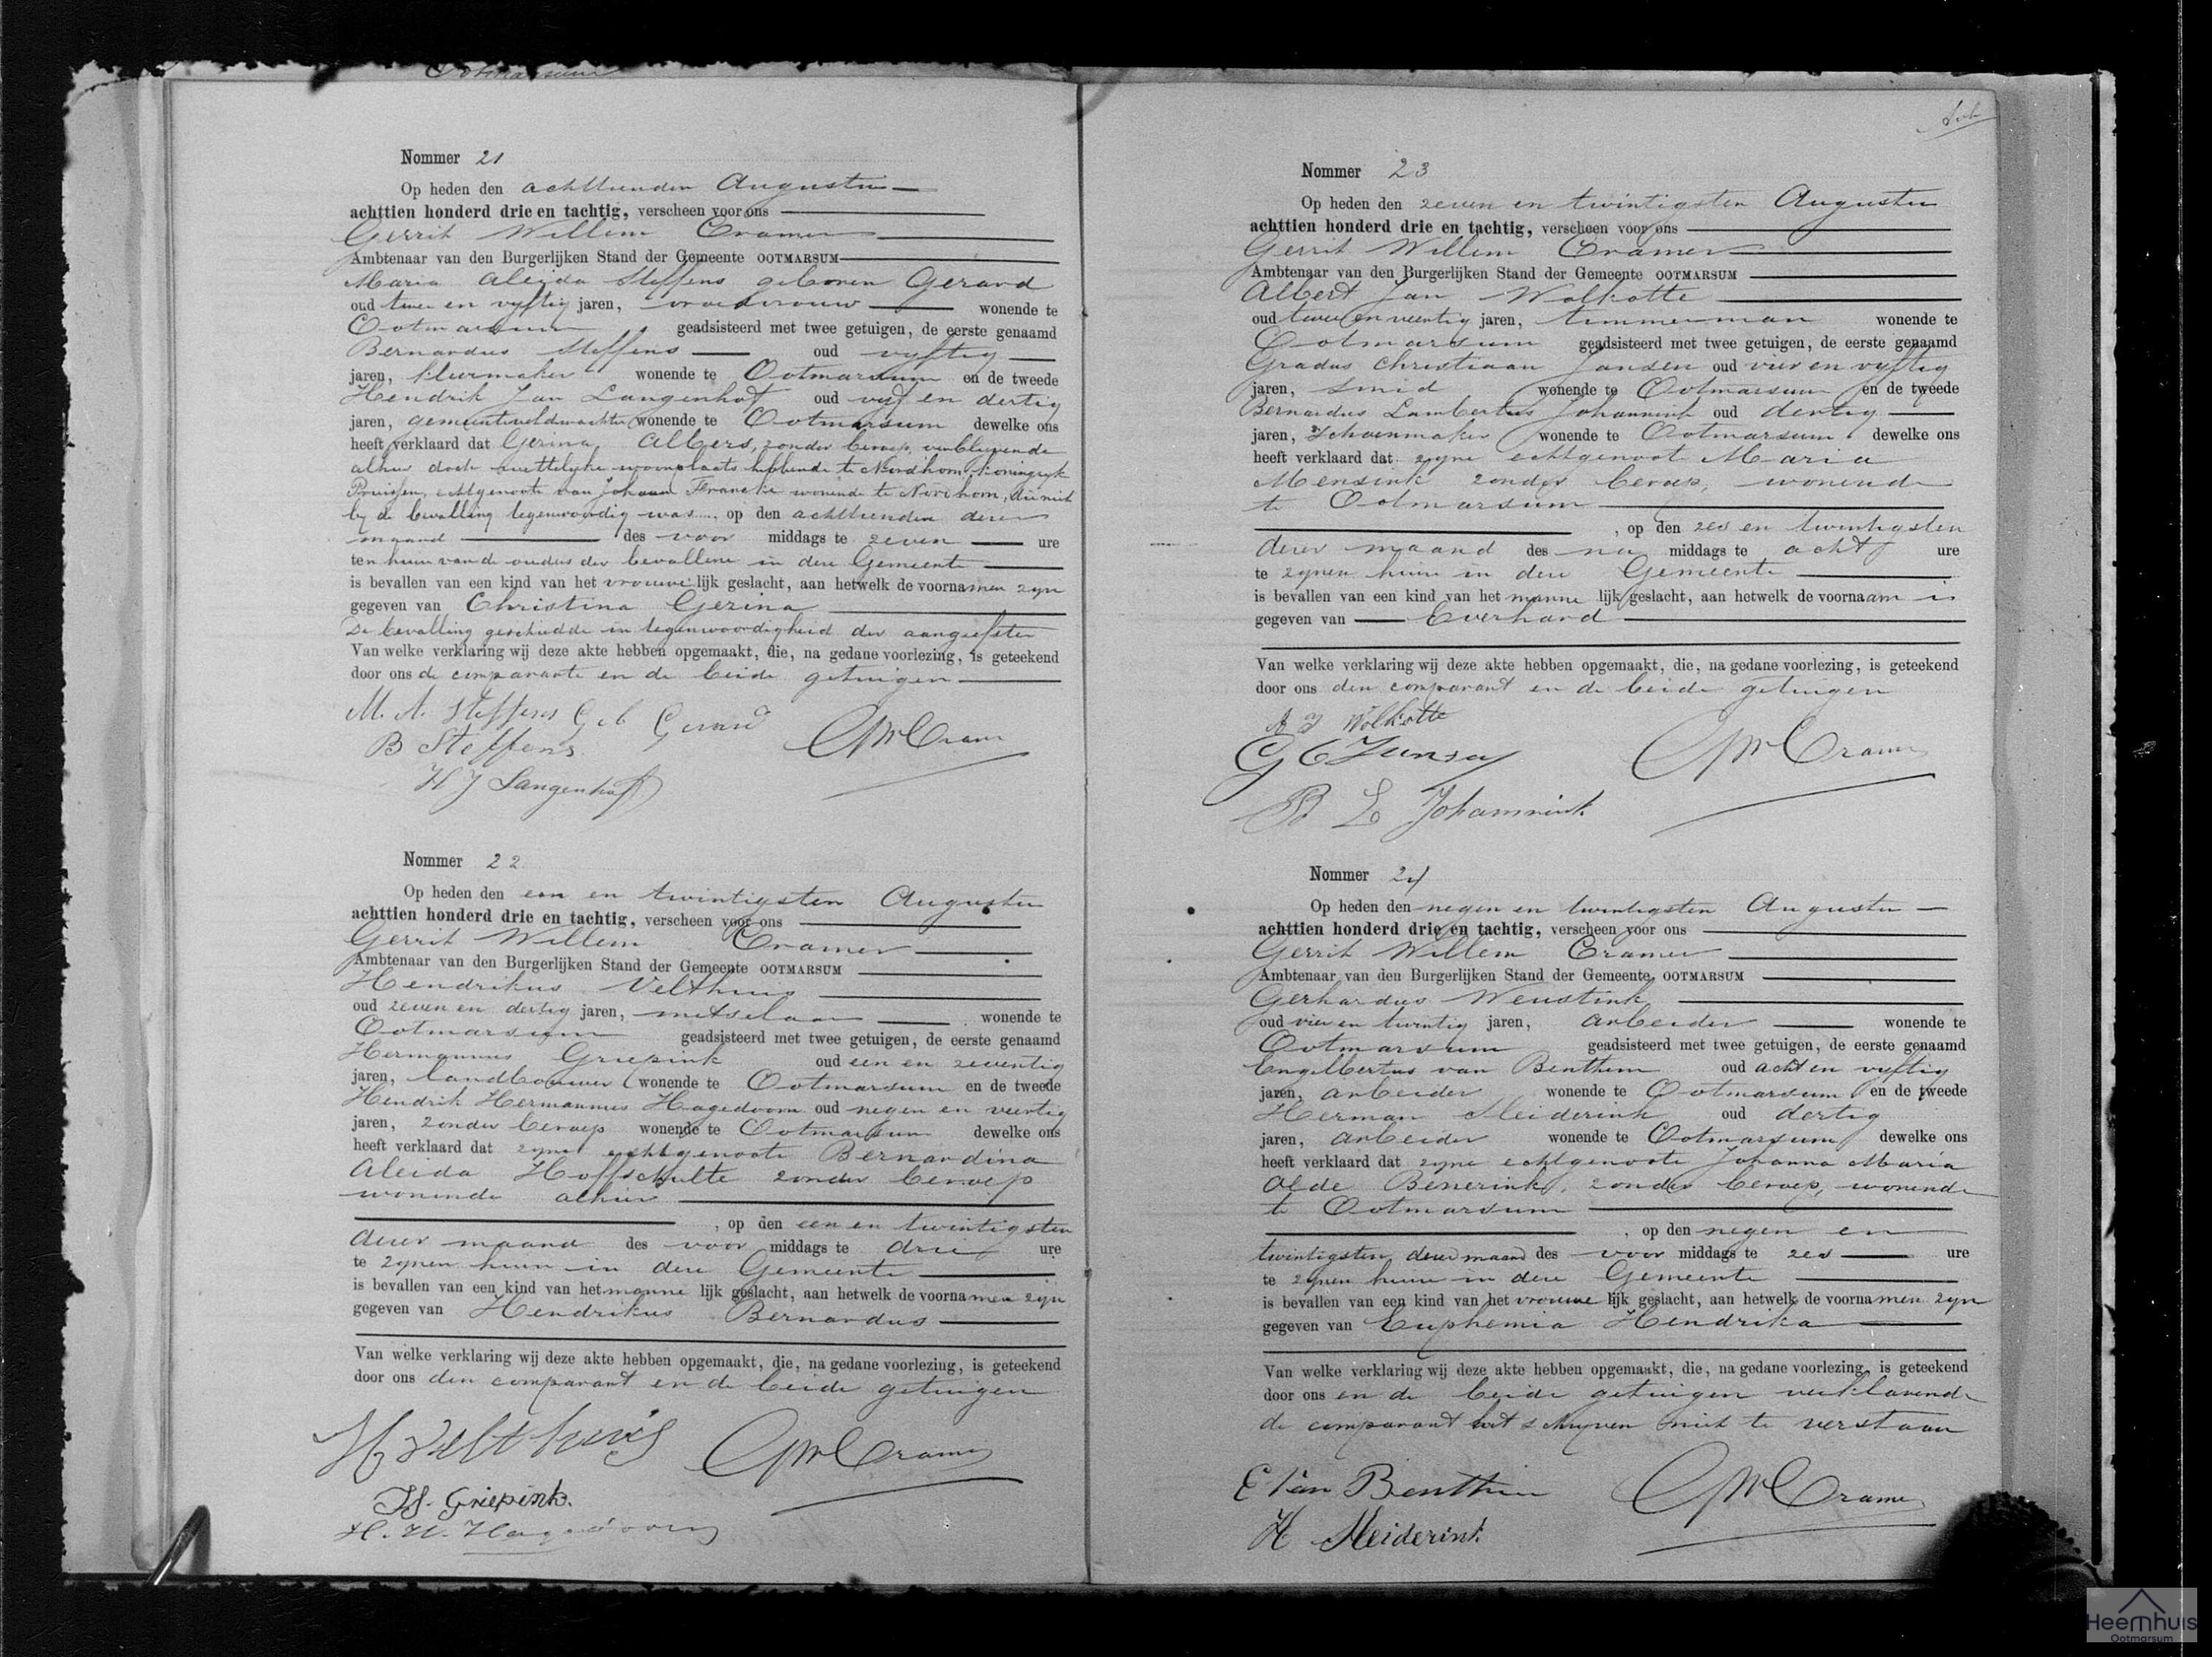 Ootmarsum
Nommer 21
Op heden den achttienden Augustus
achttien honderd drie en tachtig, verscheen voor ons
Gerrit Willem Cramer
Ambtenaar van den Burgerlijken Stand der Gemeente OOTMARSUM
Maria Aleida Steffens geboren Gerard
oud twee en vyftig jaren, vroedvrouw wonende te
Ootmarsum geadsisteerd met twee getuigen, de eerste genaamd
Bernardus Steffens oud vyftig
jaren, kleermaker wonende te Ootmarsum en de tweede
Hendrik Jan Langenhof oud vyf en dertig
jaren, gemeenteveldwachter wonende te Ootmarsum dewelke ons
heeft verklaard dat Gerina Albers, zonder beroep, verblijvende
alhier doch wettelyke woonplaats hebbende te Nordhorn, Koningryk
Pruissen, echtgenoote van Johann Francke wonende te Nordhorn, die niet
by de bevalling tegenwoordig was, op den achttienden dezer
maand des voor middags te zeven ure
ten huize van de ouders der bevallene in deze Gemeente
is bevallen van een kind van het vrouwelijk geslacht, aan hetwelk de voornamen zyn
gegeven van Christina Gerina
De bevalling geschiedde in tegenwoordigheid der aangeefster
Van welke verklaring wij deze akte hebben opgemaakt, die, na gedane voorlezing, is geteekend
door ons de comparante en de beide getuigen
M. A. Steffens Geb Gerard
B Steffens GWCramer
H J Langenhoff
Nommer 22
Op heden den een en twintigsten Augustus
achttien honderd drie en tachtig, verscheen voor ons
Gerrit Willem Cramer
Ambtenaar van den Burgerlijken Stand der Gemeente OOTMARSUM
Hendrikus Velthuis
oud zeven en dertig jaren, metselaar wonende te
Ootmarsum geadsisteerd met twee getuigen, de eerste genaamd
Hermannus Griepink oud een en zeventig
jaren, landbouwer wonende te Ootmarsum en de tweede
Hendrik Hermannus Hagedoorn oud negen en veertig
jaren, zonder beroep wonende te Ootmarsum dewelke ons
heeft verklaard dat zyne echtgenoote Bernardina
Aleida Hoffschulte zonder beroep
wonende alhier
, op den een en twintigsten
dezer maand des voor middags te drie ure
te zynen huize in deze Gemeente
is bevallen van een kind van het mannelijk geslacht, aan hetwelk de voornamen zyn
gegeven van Hendrikus Bernardus
Van welke verklaring wij deze akte hebben opgemaakt, die, na gedane voorlezing, is geteekend
door ons den comparant en de beide getuigen
H Velthuis GWCramer
H. Griepink.
H. H. Hagedoorn
Nommer 23
Op heden den zeven en twintigsten Augustus
achttien honderd drie en tachtig, verscheen voor ons
Gerrit Willem Cramer
Ambtenaar van den Burgerlijken Stand der Gemeente OOTMARSUM
Albert Jan Wolkotte
oud twee en veertig jaren, timmerman wonende te
Ootmarsum geadsisteerd met twee getuigen, de eerste genaamd
Gradus Christiaan Jansen oud vier en vyftig
jaren, smid wonende te Ootmarsum en de tweede
Bernardus Lambertus Johannink oud dertig
jaren, schoenmaker wonende te Ootmarsum dewelke ons
heeft verklaard dat zyne echtgenoot Maria
Mensink zonder beroep, wonende
te Ootmarsum
, op den zes en twintigsten
dezer maand des na middags te acht ure
te zynen huize in deze Gemeente
is bevallen van een kind van het mannelijk geslacht, aan hetwelk de voornaam is
gegeven van Everhard
Van welke verklaring wij deze akte hebben opgemaakt, die, na gedane voorlezing, is geteekend
door ons den comparant en de beide getuigen
A J Wolkotte
G C Jansen GWCramer
B L Johannink
Nommer 24
Op heden den negen en twintigsten Augustus
achttien honderd drie en tachtig, verscheen voor ons
Gerrit Willem Cramer
Ambtenaar van den Burgerlijken Stand der Gemeente OOTMARSUM
Gerhardus Weustink
oud vier en twintig jaren, arbeider wonende te
Ootmarsum geadsisteerd met twee getuigen, de eerste genaamd
Engelbertus van Benthem oud acht en vyftig
jaren, arbeider wonende te Ootmarsum en de tweede
Herman Meiderink oud dertig
jaren, arbeider wonende te Ootmarsum dewelke ons
heeft verklaard dat zyne echtgenoote Johanna Maria
Olde Benerink, zonder beroep, wonende
te Ootmarsum
, op den negen en
twintigsten dezer maand des voor middags te zes ure
te zynen huize in deze Gemeente
is bevallen van een kind van het vrouwelijk geslacht, aan hetwelk de voornamen zyn
gegeven van Euphemia Hendrika
Van welke verklaring wij deze akte hebben opgemaakt, die, na gedane voorlezing, is geteekend
door ons en de beide getuigen verklarende
de comparant het schryven niet te verstaan
E van Benthem GWCramer
H Meiderink.
Heemhuis
Ootmarsum